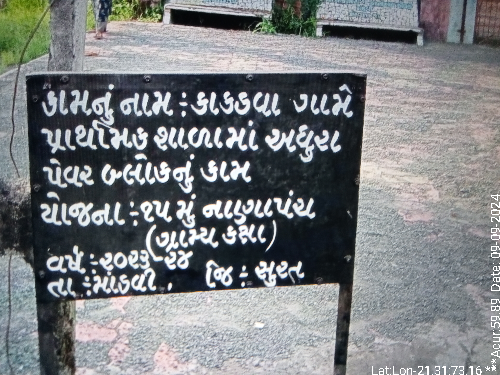 કામનું નામ : કાકડવા ગામે
પ્રાથમિક શાળામાં અધુરા
પેવર બ્લોકનું કામ
યોજના :- ૧૫ મું નાણાપંચ
(ગ્રામ્ય કક્ષા)
વર્ષ :- ૨૦૨૩-૨૪
તા : માંડવી . જિ : સુરત
Lat:Lon-21.31:73.16 ***Acur:59.89 Date: 09-09-2024